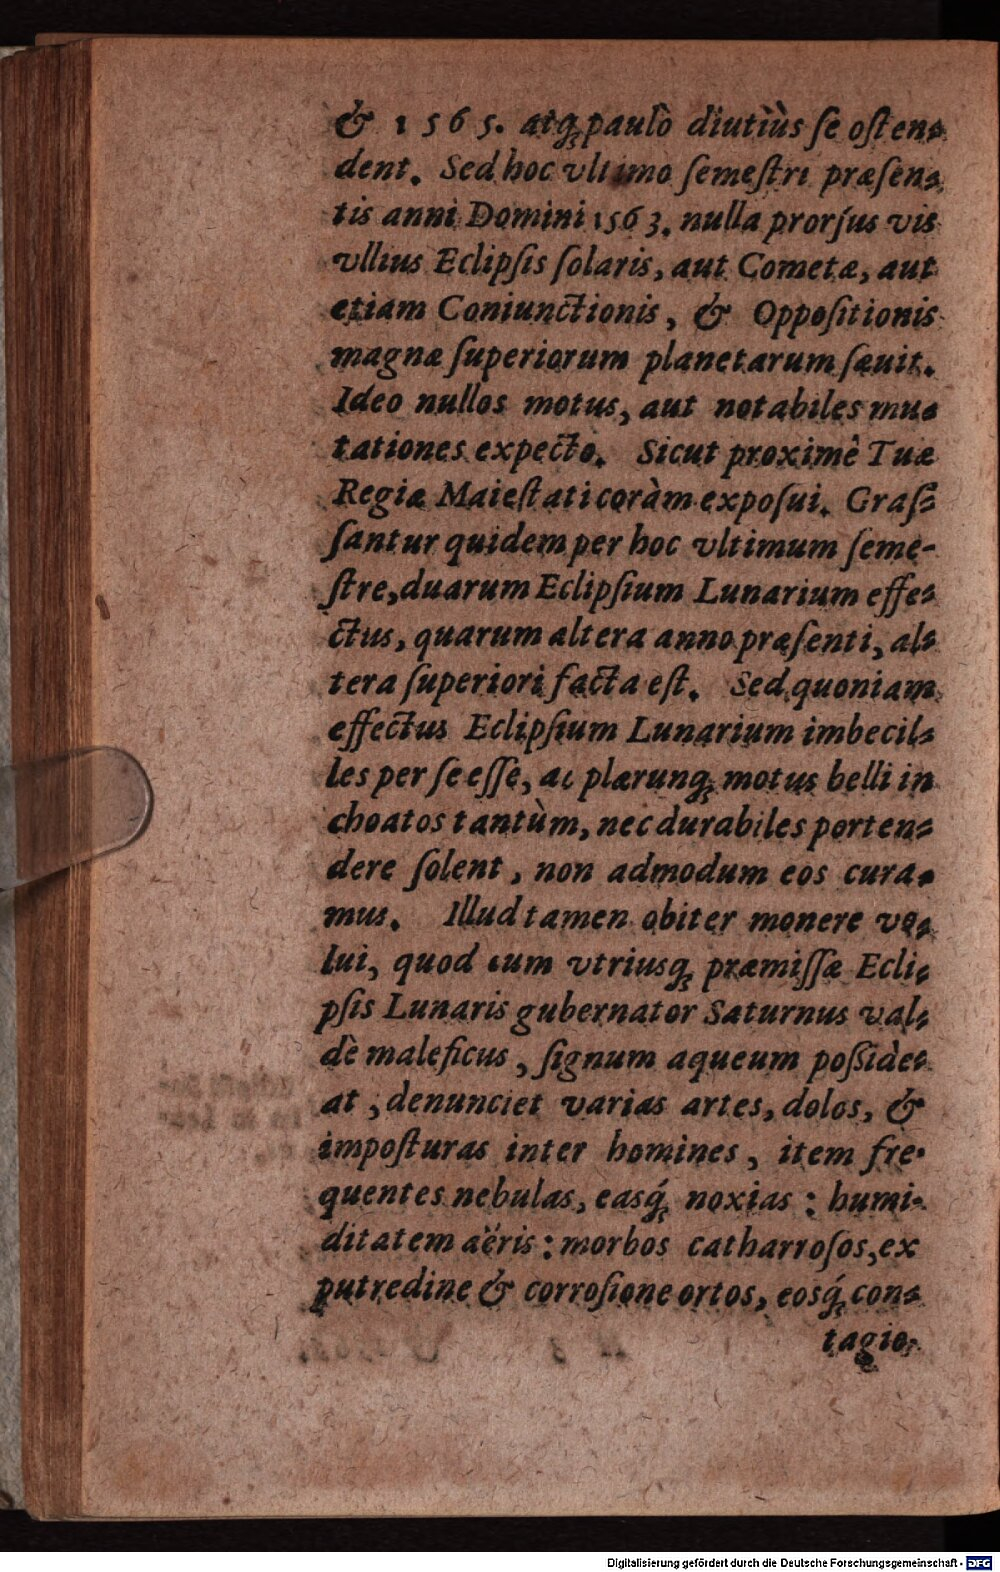 & 1565. atq́; paulò diutiùs ſe oſten-
dent. Sed hoc vltimo ſemeſtri præſen-
tis anni Domini 1563. nulla prorſus vis
vllius Eclipſis ſolaris, aut Cometæ, aut
etiam Coniunctionis, & Oppoſitionis
magnæ ſuperiorum planetarum ſæuit.
Ideo nullos motus, aut notabiles mu-
tationes expecto. Sicut proximè Tuæ
Regiæ Maieſtati coràm expoſui. Graſ-
ſantur quidem per hoc vltimum ſeme-
ſtre, duarum Eclipſium Lunarium effe-
ctus, quarum altera anno præſenti, al-
tera ſuperiori facta eſt. Sed quoniam
effectus Eclipſium Lunarium imbecil-
les per ſe eſſe, ac plærunq; motus belli in
choatos tantùm, nec durabiles porten-
dere ſolent, non admodum eos cura-
mus. Illud tamen obiter monere vo-
lui, quod cum vtriusq; præmiſſæ Ecli-
pſis Lunaris gubernator Saturnus val-
dè maleficus, ſignum aqueum poſſide-
at, denunciet varias artes, dolos, &
impoſturas inter homines, item fre-
quentes nebulas, easq́; noxias: humi-
ditatem aëris: morbos catharroſos, ex
putredine & corroſione ortos, eosq́; con-
tagio-
Digitalisierung gefördert durch die Deutsche Forschungsgemeinschaft - DFG